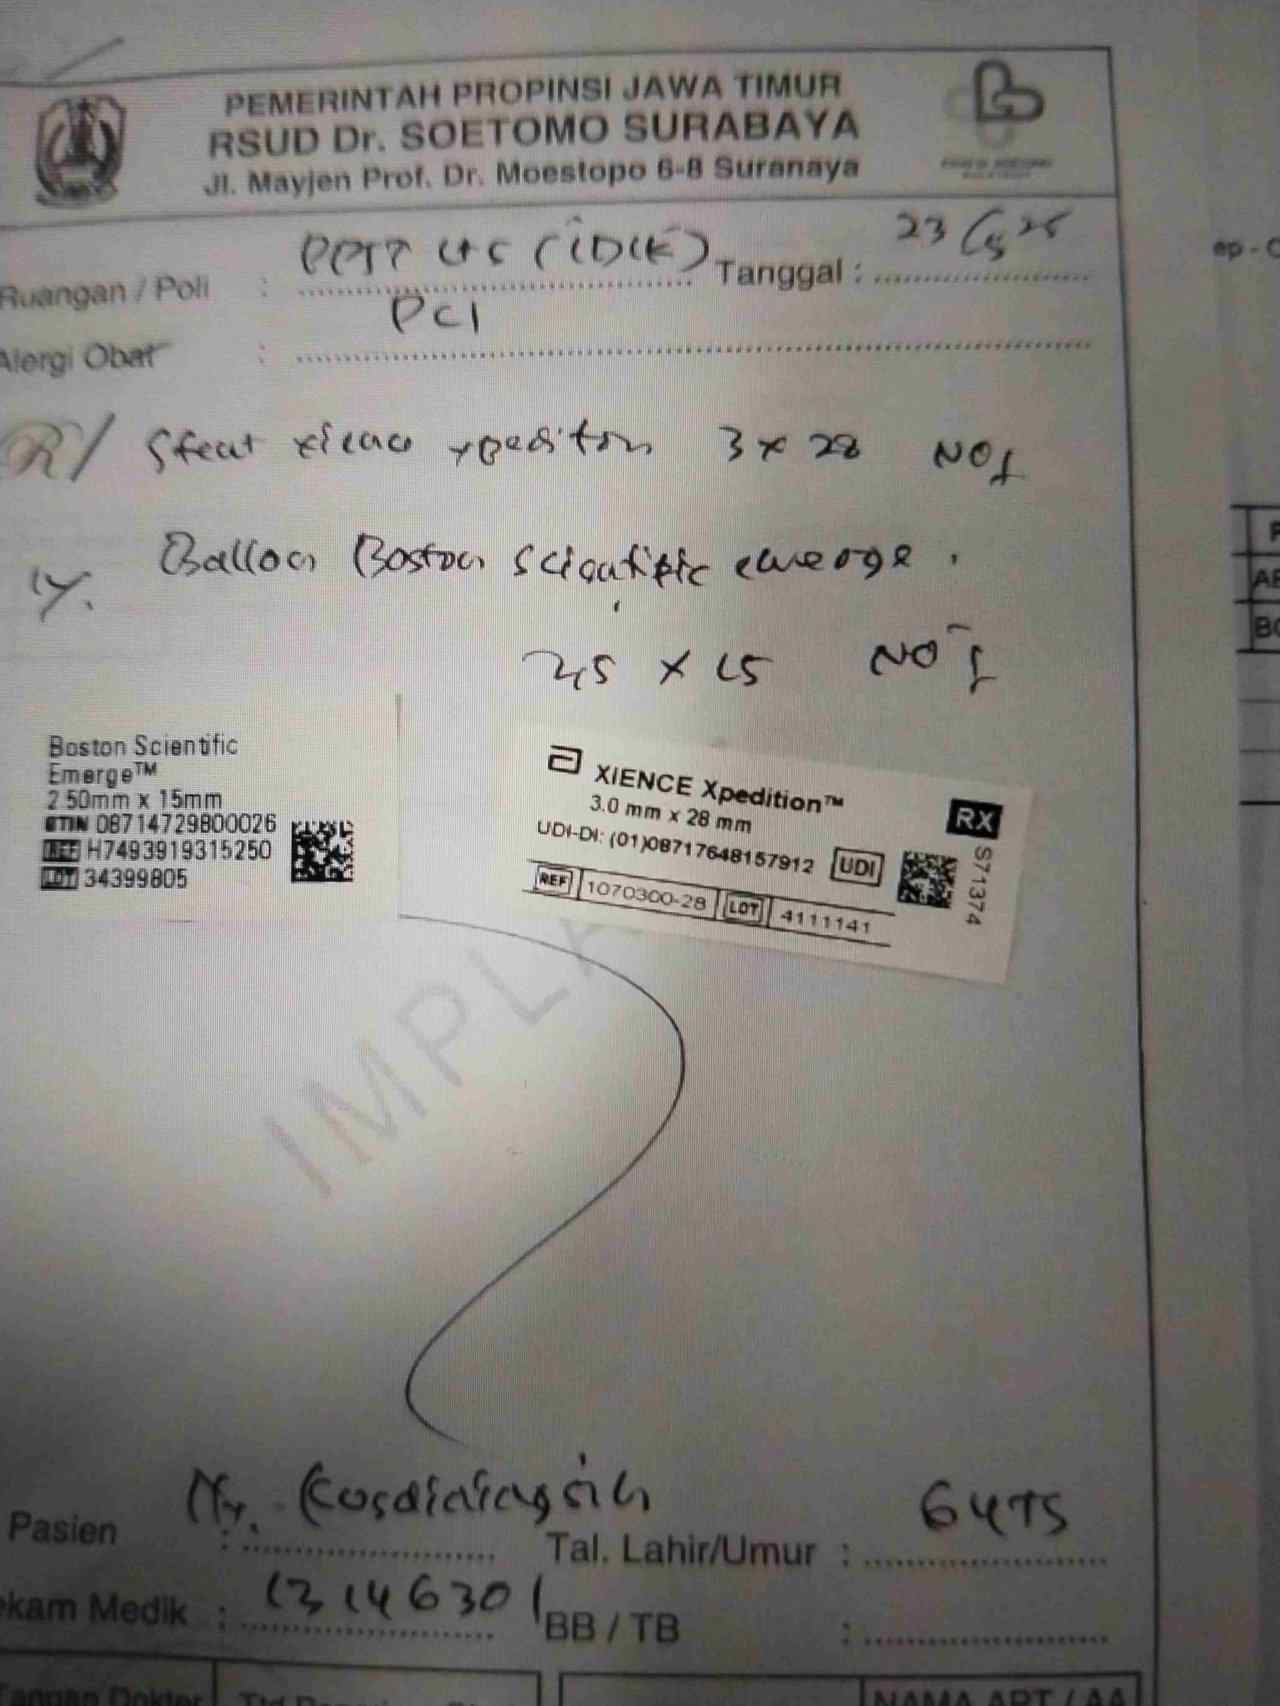 PEMERINTAH PROPINSI JAWA TIMUR
RSUD Dr. SOETOMO SURABAYA
Jl. Mayjen Prof. Dr. Moestopo 6-8 Suranaya
Ruangan / Poli : PPJT (IDIK) Tanggal : 23/5 25
PCI
Alergi Obat :
R/ Stent xience xpedition 3 x 28 NO I
Balloon Boston scientific emerge.
2,5 x 15 NO I
Boston Scientific
Emerge™
2.50mm x 15mm
GTIN 08714729800026
REF H7493919315250
LOT 34399805
XIENCE Xpedition™
3.0 mm x 28 mm
RX
UDI-DI: (01)08717648157912 UDI
S71374
REF 1070300-28 LOT 4111141
IMPLA
Pasien : Tal. Lahir/Umur : 64 TS
ekam Medik : 13146301 BB / TB :
NAMA APT / AA